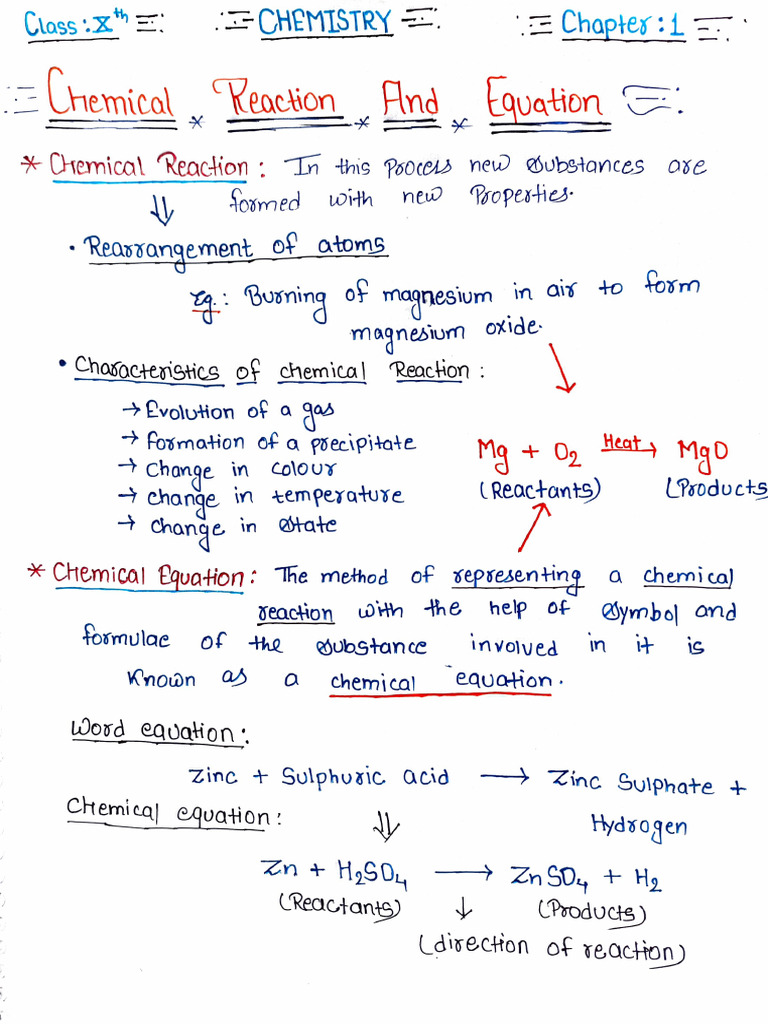 Class : Xth CHEMISTRY Chapter : 1
Chemical * Reaction * And * Equation
* Chemical Reaction : In this process new substances are
formed with new Properties.
⇓
• Rearrangement of atoms
Eg. : Burning of magnesium in air to form
magnesium oxide.
• Characteristics of chemical Reaction :
→ Evolution of a gas
→ formation of a precipitate
→ change in colour
→ change in temperature
→ change in state
Mg + O₂ Heat→ MgO
(Reactants) (Products
* Chemical Equation : The method of representing a chemical
reaction with the help of symbol and
formulae of the substance involved in it is
known as a chemical equation.
Word equation :
Zinc + Sulphuric acid → Zinc Sulphate +
Hydrogen
Chemical equation :
⇓
Zn + H₂SO₄ → ZnSO₄ + H₂
(Reactants) ↓ (Products)
(direction of reaction)